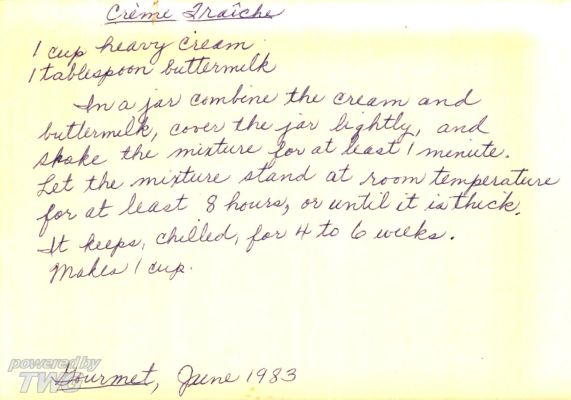 Crème Fraîche
1 cup heavy cream
1 tablespoon buttermilk
In a jar combine the cream and
buttermilk, cover the jar tightly, and
shake the mixture for at least 1 minute.
Let the mixture stand at room temperature
for at least 8 hours, or until it is thick.
It keeps, chilled, for 4 to 6 weeks.
Makes 1 cup.
powered by
TWS
Gourmet, June 1983